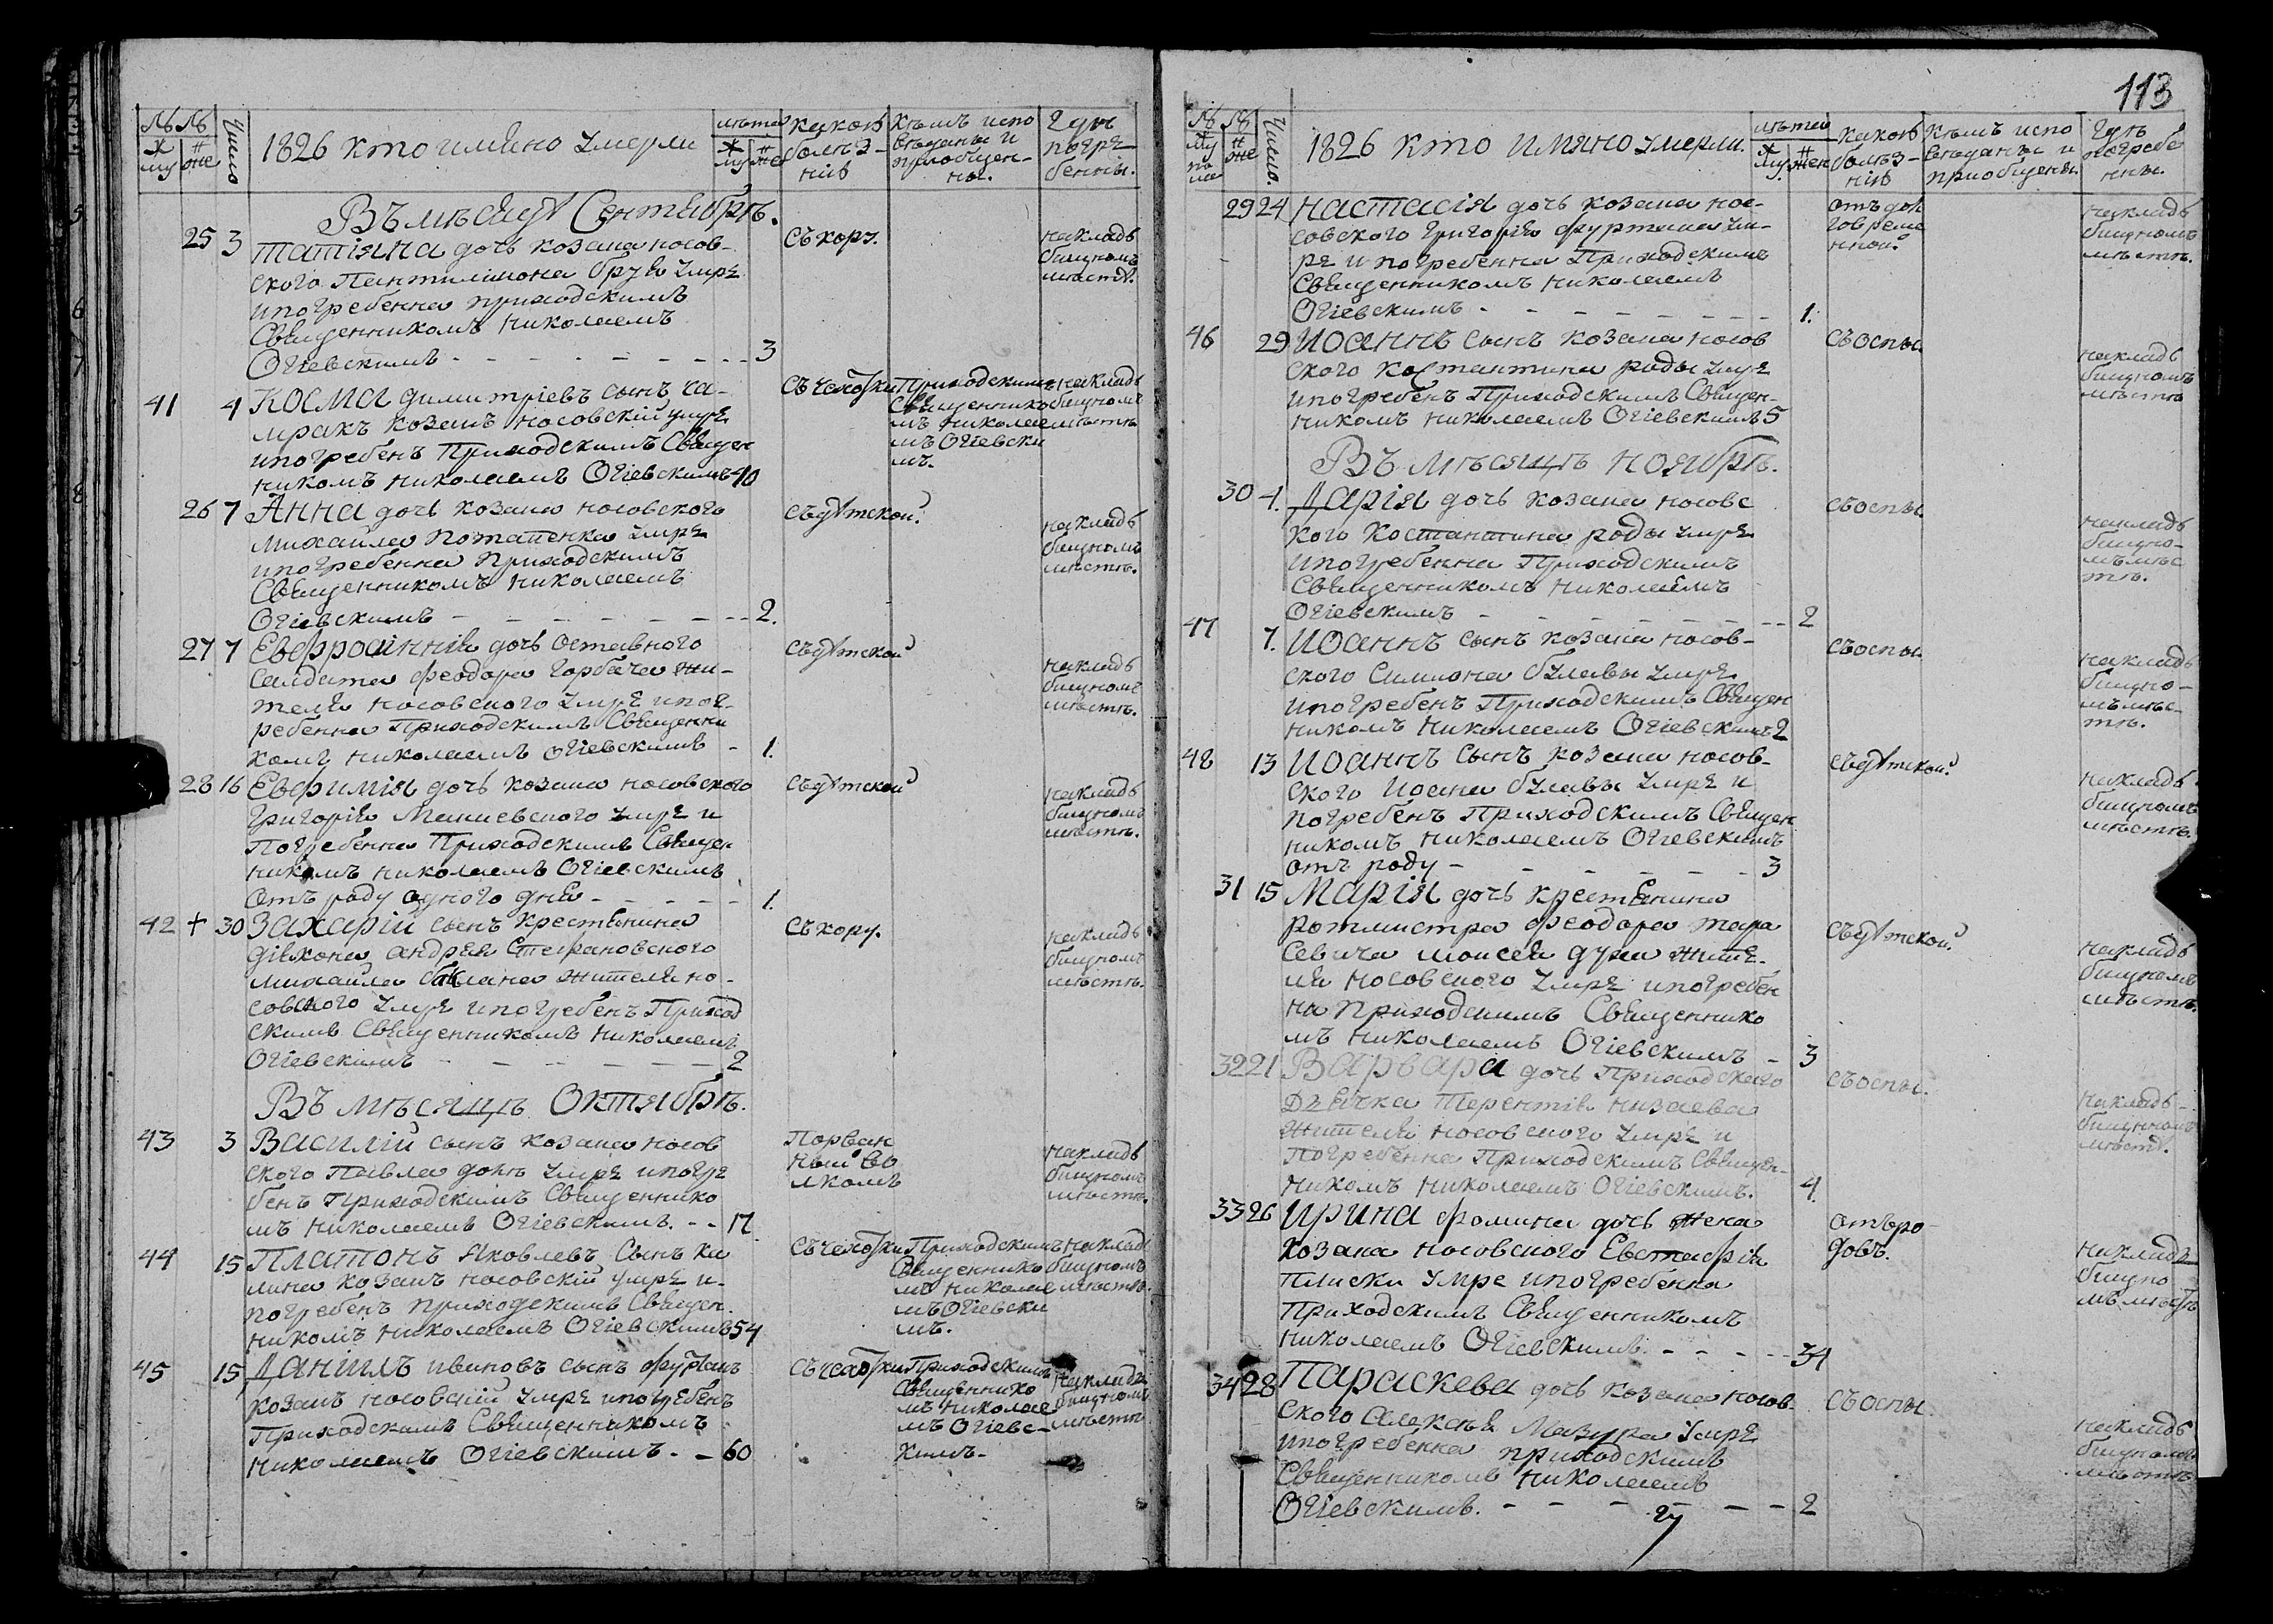 113
№ № Число
муж жен
1826 кто имяно умерли
лѣта
муж же
какой болѣзнію
Кѣмъ исповѣданы и приобщены.
Гдѣ погребенны.
Въ мѣсяцѣ Сентябрѣ.
25 3 Татіяна дочь козака носов-
ского Пантилимона бруя умре
и погребенна приходскимъ
Священникомъ Николаемъ
Огіевскимъ - - - - - - - - 3
съ кору.
на кладбищномъ мѣстѣ.
41 4 Косма димитріевъ сынъ са-
мракъ козакъ носовскій умре
и погребенъ Приходскимъ Священ
никомъ Николаемъ Огіевскимъ 40
съ чехотки
Приходскимъ
Священнико
мъ Николае
мъ Огіевски
мъ.
на кладбищномъ мѣстѣ
26 7 Анна дочь козака носовского
Михайла Потапенка умре
и погребенна Приходскимъ
Священникомъ Николаемъ
Огіевскимъ - - - - - - - - 2.
съ дѣтской.
на кладбищномъ мѣстѣ.
27 7 Евфросинія дочь оставного
Салдата Феодора Горбача жи-
теля носовского умре и пог-
ребенна Приходскимъ Священни
комъ Николаемъ Огіевскимъ - 1.
съ дѣтской
на кладбищномъ мѣстѣ.
28 16 Евфимія дочь козака носовского
Григорія Макиевского умре и
Погребенна Приходскимъ Священ
никомъ Николаемъ Огіевскимъ
отъ роду одного дня - - - - - 1.
съ дѣтской
на кладбищномъ мѣстѣ.
42 + 30 Захарій сынъ крестянина
діякона Андрея Стефановского
Михайла жителя но-
совского умре и погребенъ Приход
скимъ Священникомъ Николаемъ
Огіевскимъ - - - - - - - 2
съ кору.
на кладбищномъ мѣстѣ.
Въ мѣсяцѣ Октябрѣ.
43 3 Василій сынъ козака носов
ского Павла умре и погре
бенъ Приходскимъ Священнико
мъ Николаемъ Огіевскимъ. - - 17
Порван
ный во
лкомъ
на кладбищномъ мѣстѣ.
44 15 Платонъ Яковлевъ Сынъ ка
лина козакъ носовскій умре и
погребенъ приходскимъ Священ.
никомъ Николаемъ Огіевскимъ 54
съ чехотки
Приходскимъ
Священнико
мъ Николае
мъ Огіевски
мъ.
на кладбищномъ мѣстѣ.
45 15 Даніилъ ивановъ сынъ
козакъ носовскій умре и погребенъ
Приходскимъ Священникомъ
Николаемъ Огіевскимъ. - - 60
съ чехотки
Приходскимъ
Священнико
мъ Николае
мъ Огіевс-
кимъ-
на кладбищномъ мѣстѣ
№ № Число.
1826 кто имяно умерли.
лѣта
муж жен
какой болѣзнію
Кѣмъ исповѣданы и приобщены.
Гдѣ погребенны.
29 24 Настасія дочь козака нос-
совского Григорія Фуртака ум-
ре и погребенна Приходскимъ
Священникомъ Николаемъ
Огіевскимъ - - - - - - - - 1.
отъ дол
говреме
нной.
на кладбищномъ мѣстѣ.
46 29 Иоаннъ сынъ козака носов
ского Костантина роды умре
и погребенъ Приходскимъ Священ-
никомъ Николаемъ Огіевскимъ 5
съ оспы.
на кладбищномъ мѣстѣ
Въ мѣсяцѣ Ноябрѣ.
30 4. Дарія дочь козака носовс
кого Костантина роды умре
и погребенна Приходскимъ
Священникомъ Николаемъ
Огіевскимъ - - - - - - - - 2
съ оспы.
на кладбищномъ мѣстѣ.
47 7. Иоаннъ сынъ козака носов-
ского Симиона булавы умре
и погребенъ Приходскимъ Священ
никомъ Николаемъ Огіевскимъ 2
съ оспы.
на кладбищномъ мѣстѣ.
48 13 Иоаннъ сынъ козака носов-
ского Иоана булавы умре и
погребенъ Приходскимъ Священ
никомъ Николаемъ Огіевскимъ
отъ роду - - - - - - 3
съ дѣтской.
на кладбищномъ мѣстѣ.
31 15 Марія дочь крестянина
ротмистра Феодора тара
севича Моисея жите-
ля носовского умре и погребен
на Приходскимъ Священнико
мъ Николаемъ Огіевскимъ - 3
съ дѣтской.
на кладбищномъ мѣстѣ.
32 21 Варвара дочь Приходского
Дячка Терентія
жителя носовского умре и
Погребенна Приходскимъ Священ-
никомъ Николаемъ Огіевскимъ. 4
съ оспы.
на кладбищномъ мѣстѣ.
33 26 Ирина фомина дочь жена
козака носовского Евстафія
плиски умре и погребенна
Приходскимъ Священникомъ
Николаемъ Огіевскимъ. - - - - 34
отъ ро-
довъ.
на кладбищномъ мѣстѣ
34 28 Параскева дочь козака носов-
ского Алексѣя Мазура умре
и погребенна приходскимъ
Священникомъ Николаемъ
Огіевскимъ. - - - - - - 2
съ оспы.
на кладбищномъ мѣстѣ